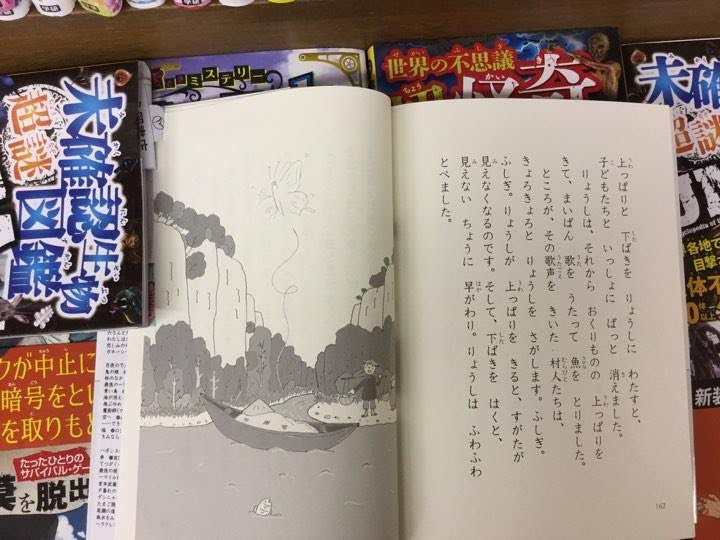 上っぱりと 下ばきを りょうしに わたすと、
子どもたちと いっしょに ぱっと 消えました。
りょうしは、それから おくりものの 上っぱりを
きて、まいばん 歌を うたって 魚を とりました。
ところが、その歌声を きいた 村人たちは、
きょろきょろと りょうしを さがします。ふしぎ。
ふしぎ。りょうしが 上っぱりを きると、すがたが
見えなくなるのです。そして、下ばきを はくと、
見えない ちょうに 早がわり。りょうしは ふわふわ
とべました。
162
未確認生物
超謎図鑑
ミステリー
世界の不思議
怪奇
未確
超謎
各地で
目撃
体不
以上
新装
クが中止に
暗号をとい
を取りもど
たったひとりの
サバイバル・ゲー
漠を脱出
学研